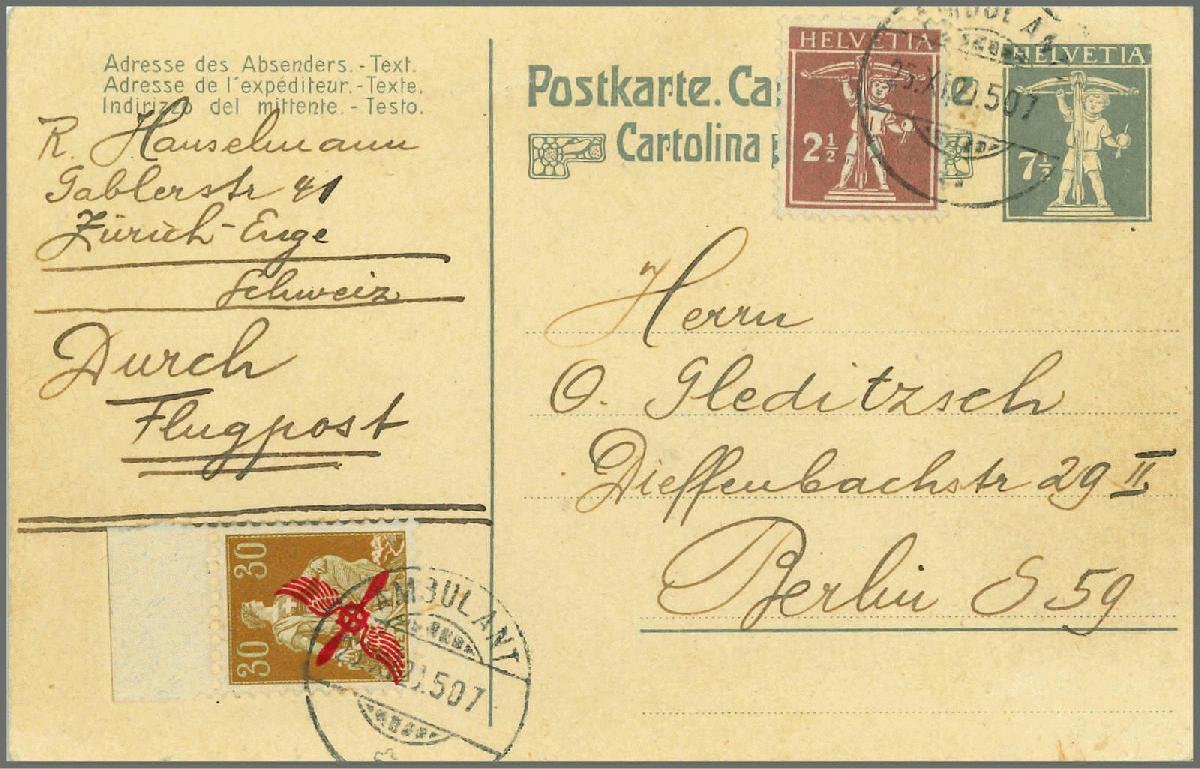 Adresse des Absenders. - Text.
Adresse de l'expéditeur. - Texte.
Indirizzo del mittente. - Testo.
R. Hanselmann
Gablerstr 41
Zürich-Enge
Schweiz
Durch
Flugpost
30 30
AMBULANT
507
Postkarte. Ca
Cartolina
HELVETIA
2½
AMBULA
25.XI.20.507
HELVETIA
7½
Herrn
O. Gleditzsch
Dieffenbachstr 29 II
Berlin S 59